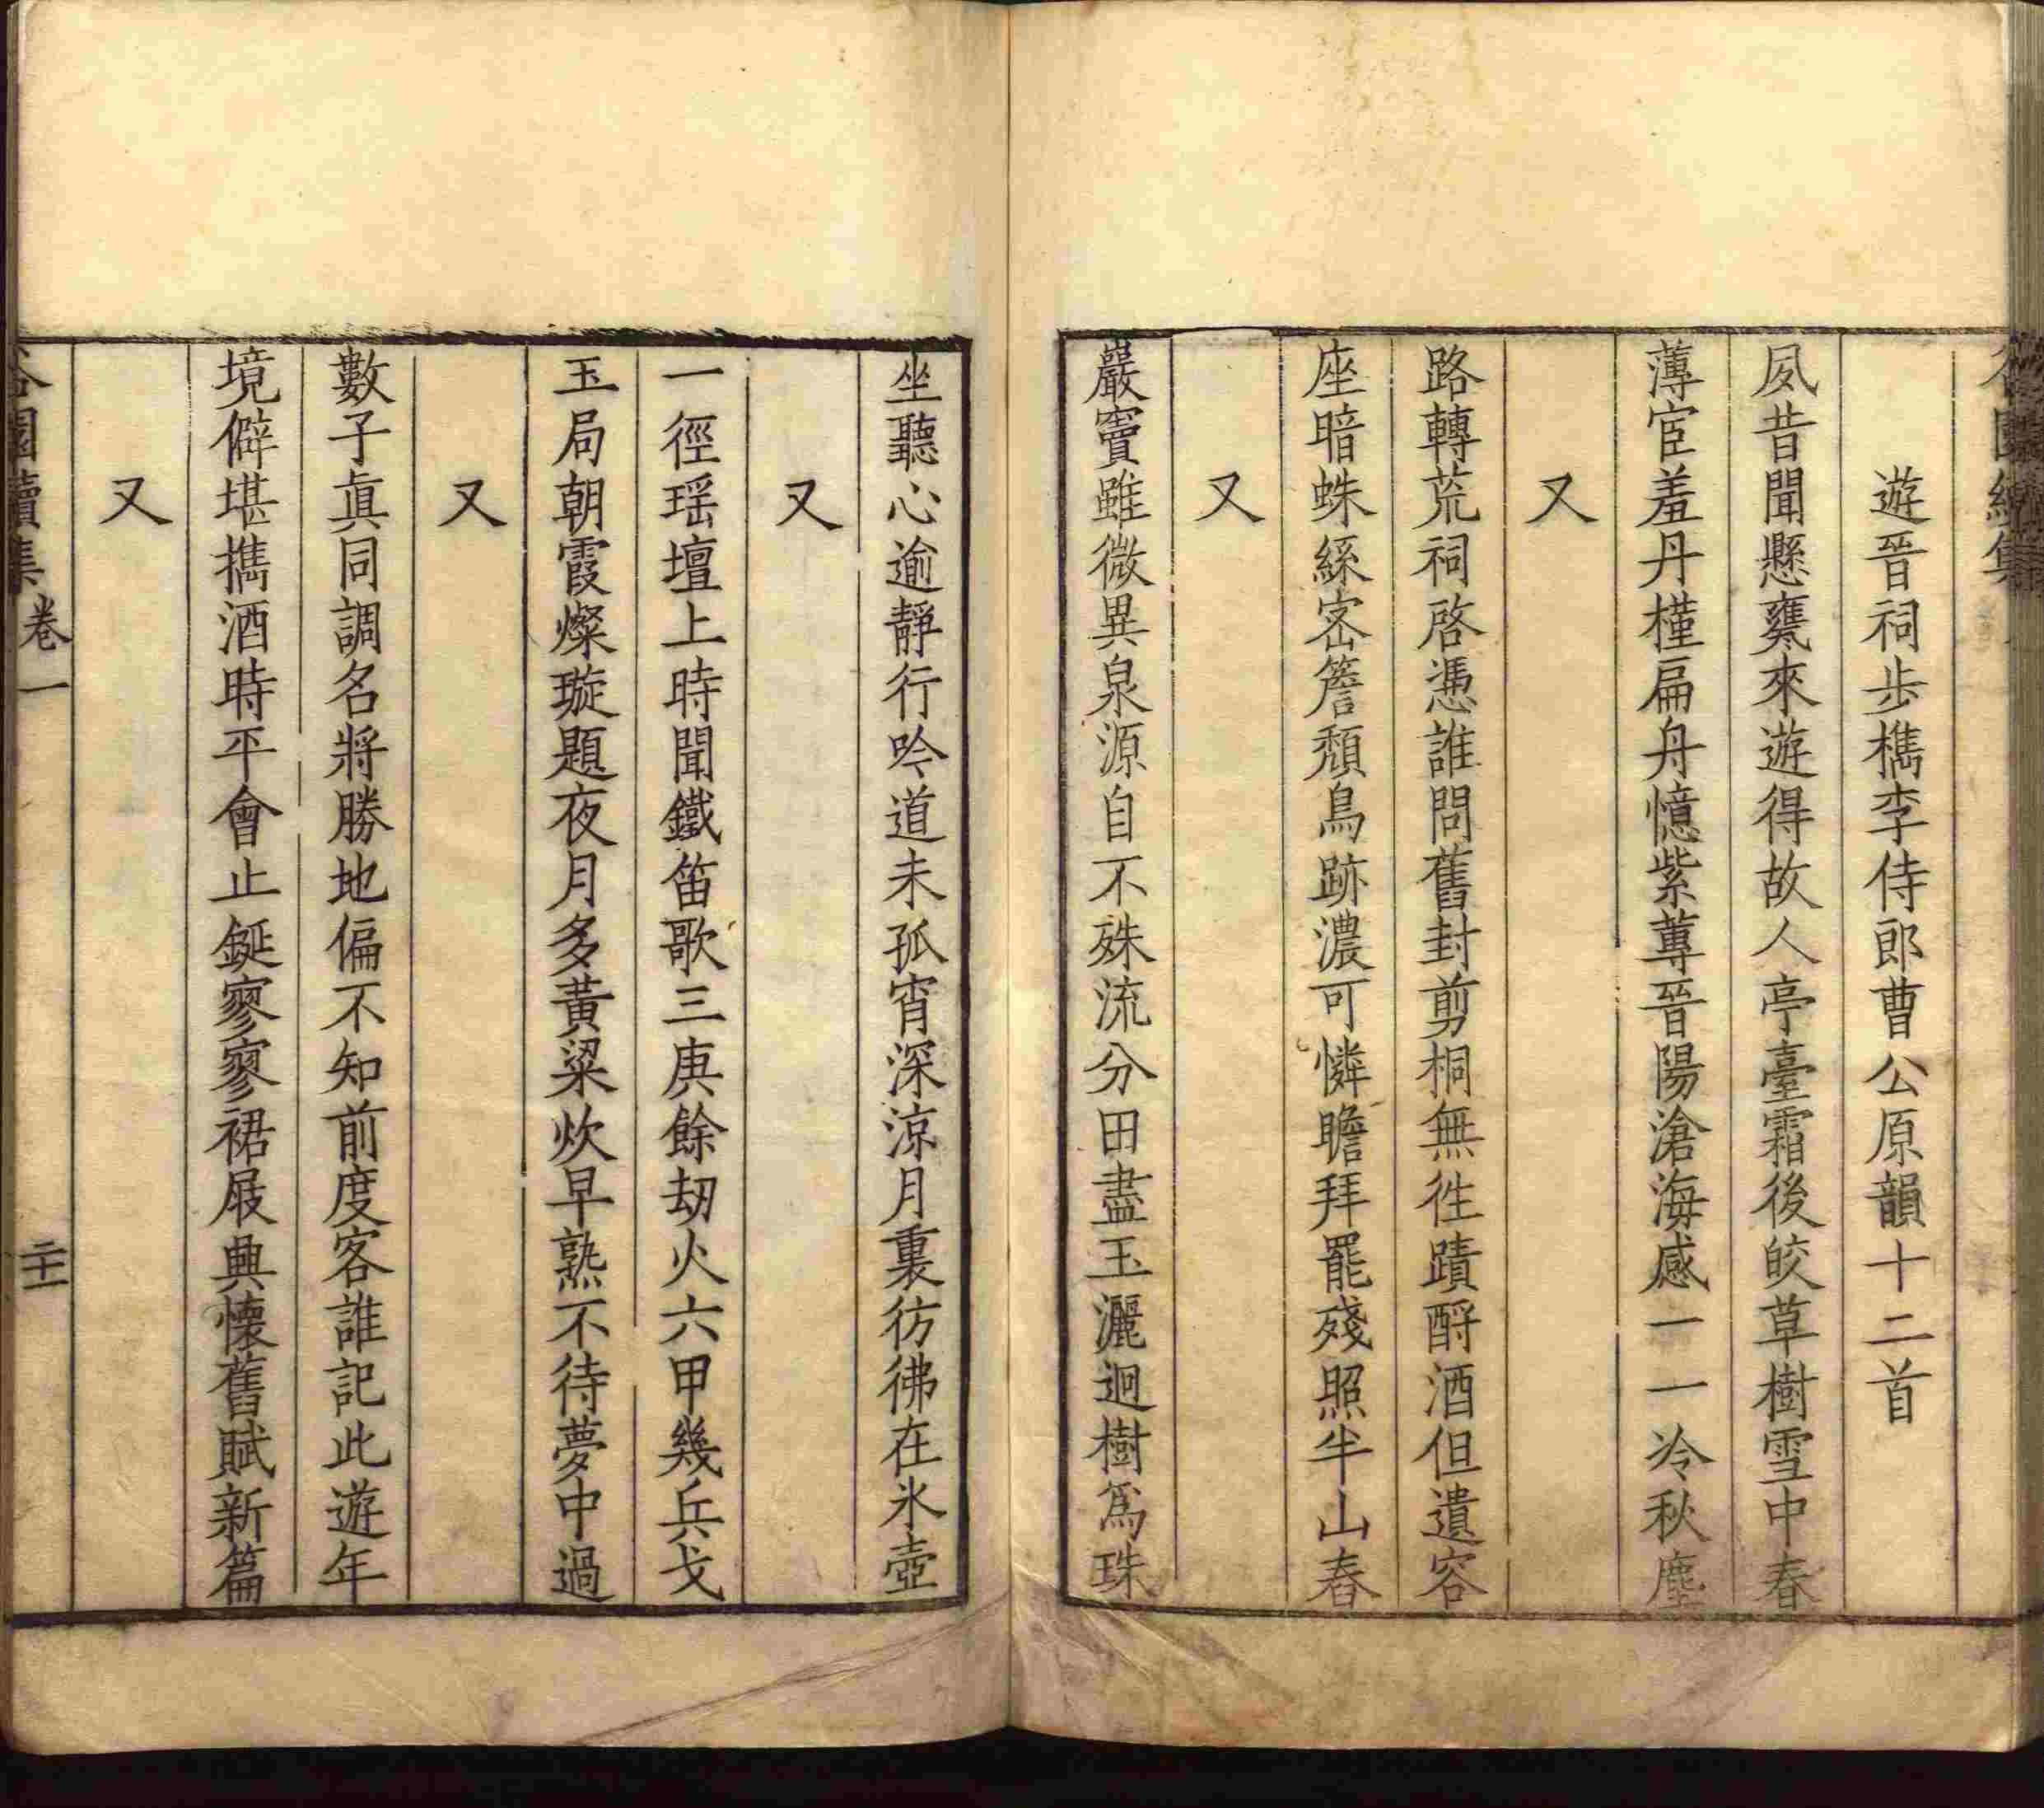 遊晉祠步檇李侍郎曹公原韻十二首
夙昔聞懸甕來遊得故人亭臺霜後皎草樹雪中春
薄宦羞丹槿扁舟憶紫蓴晉陽滄海感一一冷秋塵
又
路轉荒祠啓憑誰問舊封剪桐無徃蹟酹酒但遺容
座暗蛛絲宻簷頹鳥跡濃可憐瞻拜罷殘照半山舂
又
巖竇雖微異泉源自不殊流分田盡玉灑迴樹爲珠
坐聽心逾靜行吟道未孤宵深涼月裏彷彿在氷壺
又
一徑瑶壇上時聞鐵笛歌三庚餘刼火六甲幾兵戈
玉局朝霞燦璇題夜月多黃粱炊早熟不待夢中過
又
數子眞同調名將勝地偏不知前度客誰記此遊年
境僻堪擕酒時平會止鋋寥寥裙屐興懷舊賦新篇
又
園續集
卷一
二十一